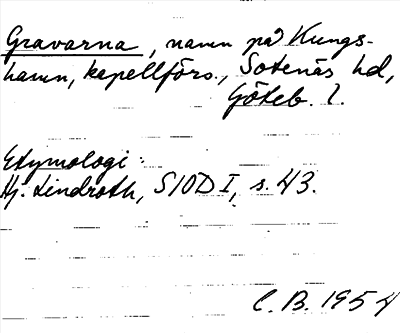 Gravarna, namn på Kungs-
hamn, kapellförs., Sotenäs hd,
Göteb. l.
Etymologi:
Hj. Lindroth, SIOD I, s. 43.
C. B. 1954